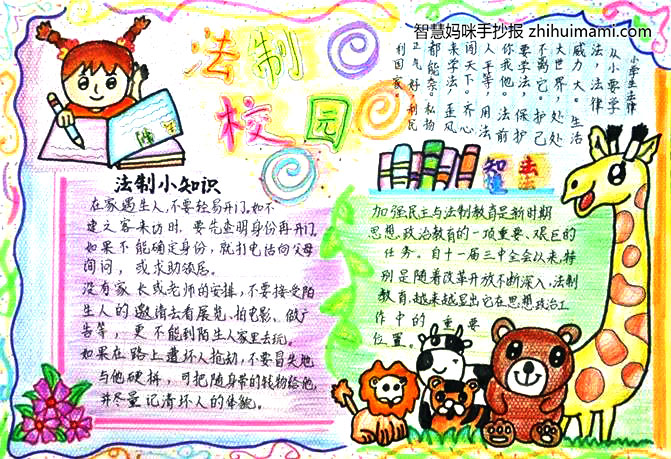 智慧妈咪手抄报 zhihuimami.com
法制
校园
小学生法律
从小要学
法，法律
威力大。生活
大世界，处处
不离它。护己
人平等。
闯天下。齐心
来学法。歪风
利国家。
知法
法制小知识
在家遇生人，不要轻易开门。如不
速之客来访时，要先查明身份再开门，
如果不能确定身份，就打电话向父母
询问，或求助领居。
没有家长或老师的安排，不要接受陌
生人的邀请去看展览、拍电影、做广
告等，更不能到陌生人家里去玩。
如果在路上遭坏人抢劫，不要冒失地
与他硬拼，可把随身带的钱物给他，
并尽量记清坏人的体貌。
加强民主与法制教育是新时期
思想政治教育的一项重要、艰巨的
任务。自十一届三中全会以来，特
别是随着改革开放不断深入，法制
教育，越来越显出它在思想政治工
作中的重要
位置。